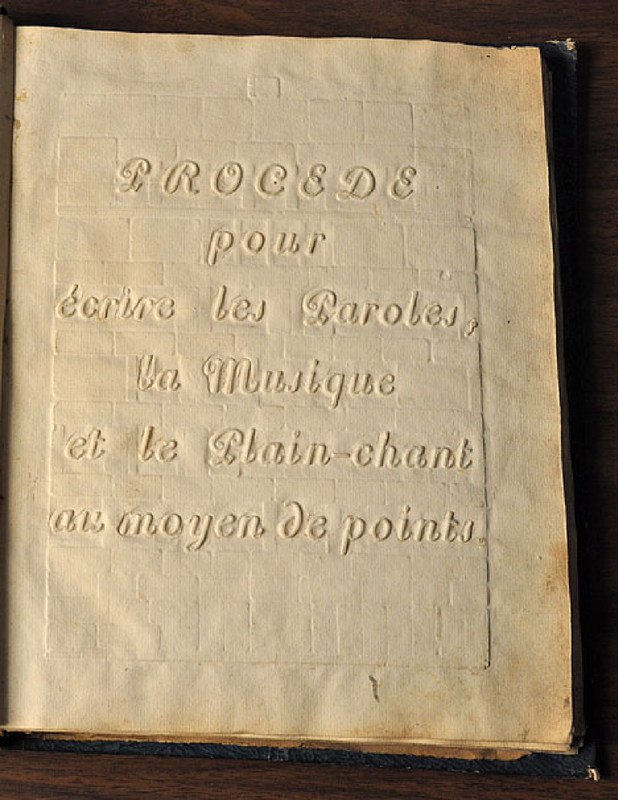 PROCEDE
pour
écrire les Paroles,
la Musique
et le Plain-chant
au moyen de points.